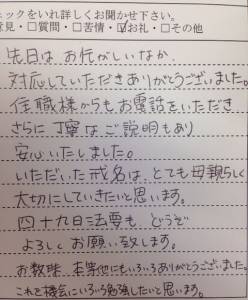 ェックをいれ詳しくお聞かせ下さい。
意見・□質問・□苦情・☑お礼・□その他
先日は お忙しいなか、
対応していただきありがとうございました。
住職様からもお電話をいただき
さらに丁寧なご説明もあり
安心いたしました。
いただいた戒名は、とても母親らしく
大切にしていきたいと思います。
四十九日法要も どうぞ
よろしくお願い致します。
お数珠、本等他にもいろいろありがとうございました。
これを機会にいろいろ勉強したいと思います。